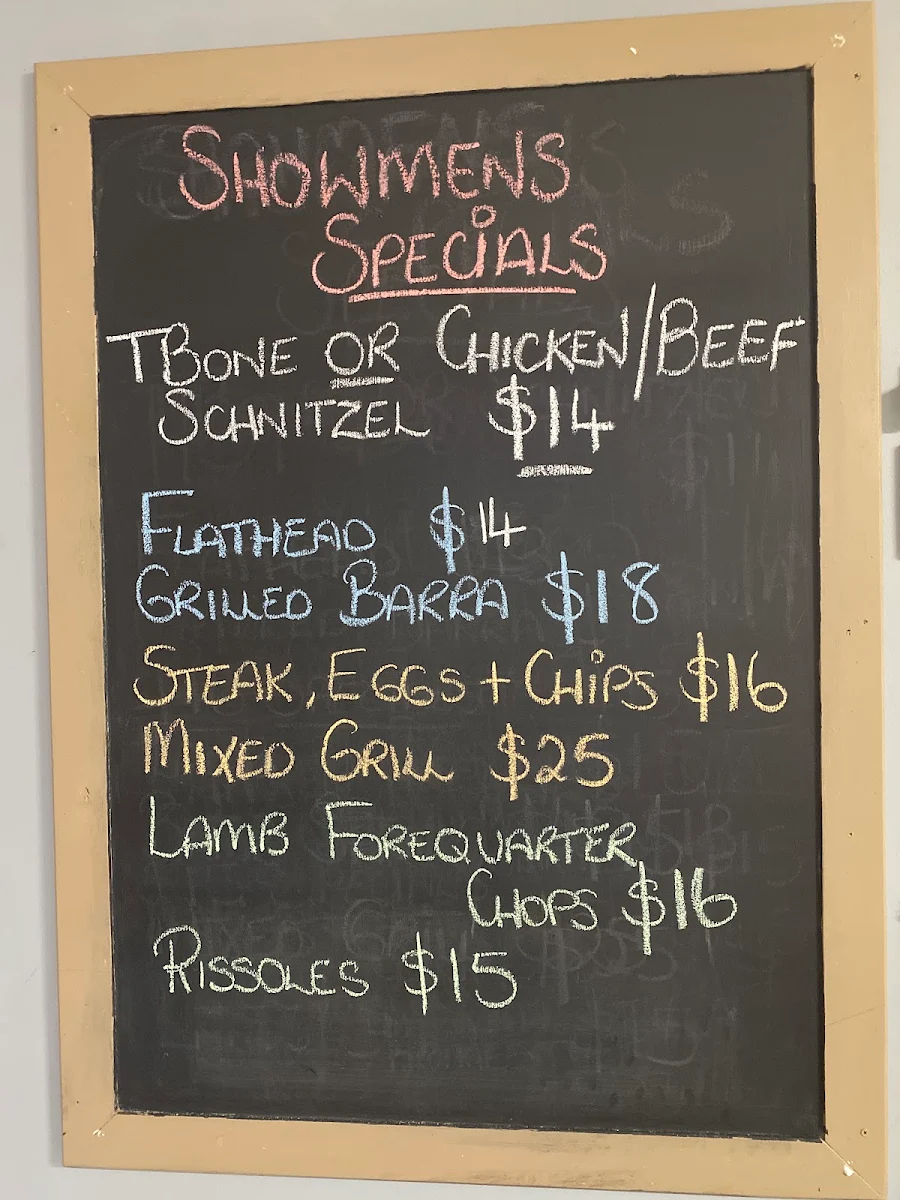 SHOWMENS
SPECiALS
TBONE OR CHICKEN/BEEF
SCHNITZEL $14
FLATHEAD $14
GRILLED BARRA $18
STEAK, EGGS + CHiPS $16
MIXED GRILL $25
LAMB FOREQUARTER
CHOPS $16
RISSOLES $15